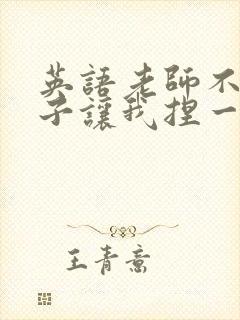 英語老師不
子讓我捏一
王青喬